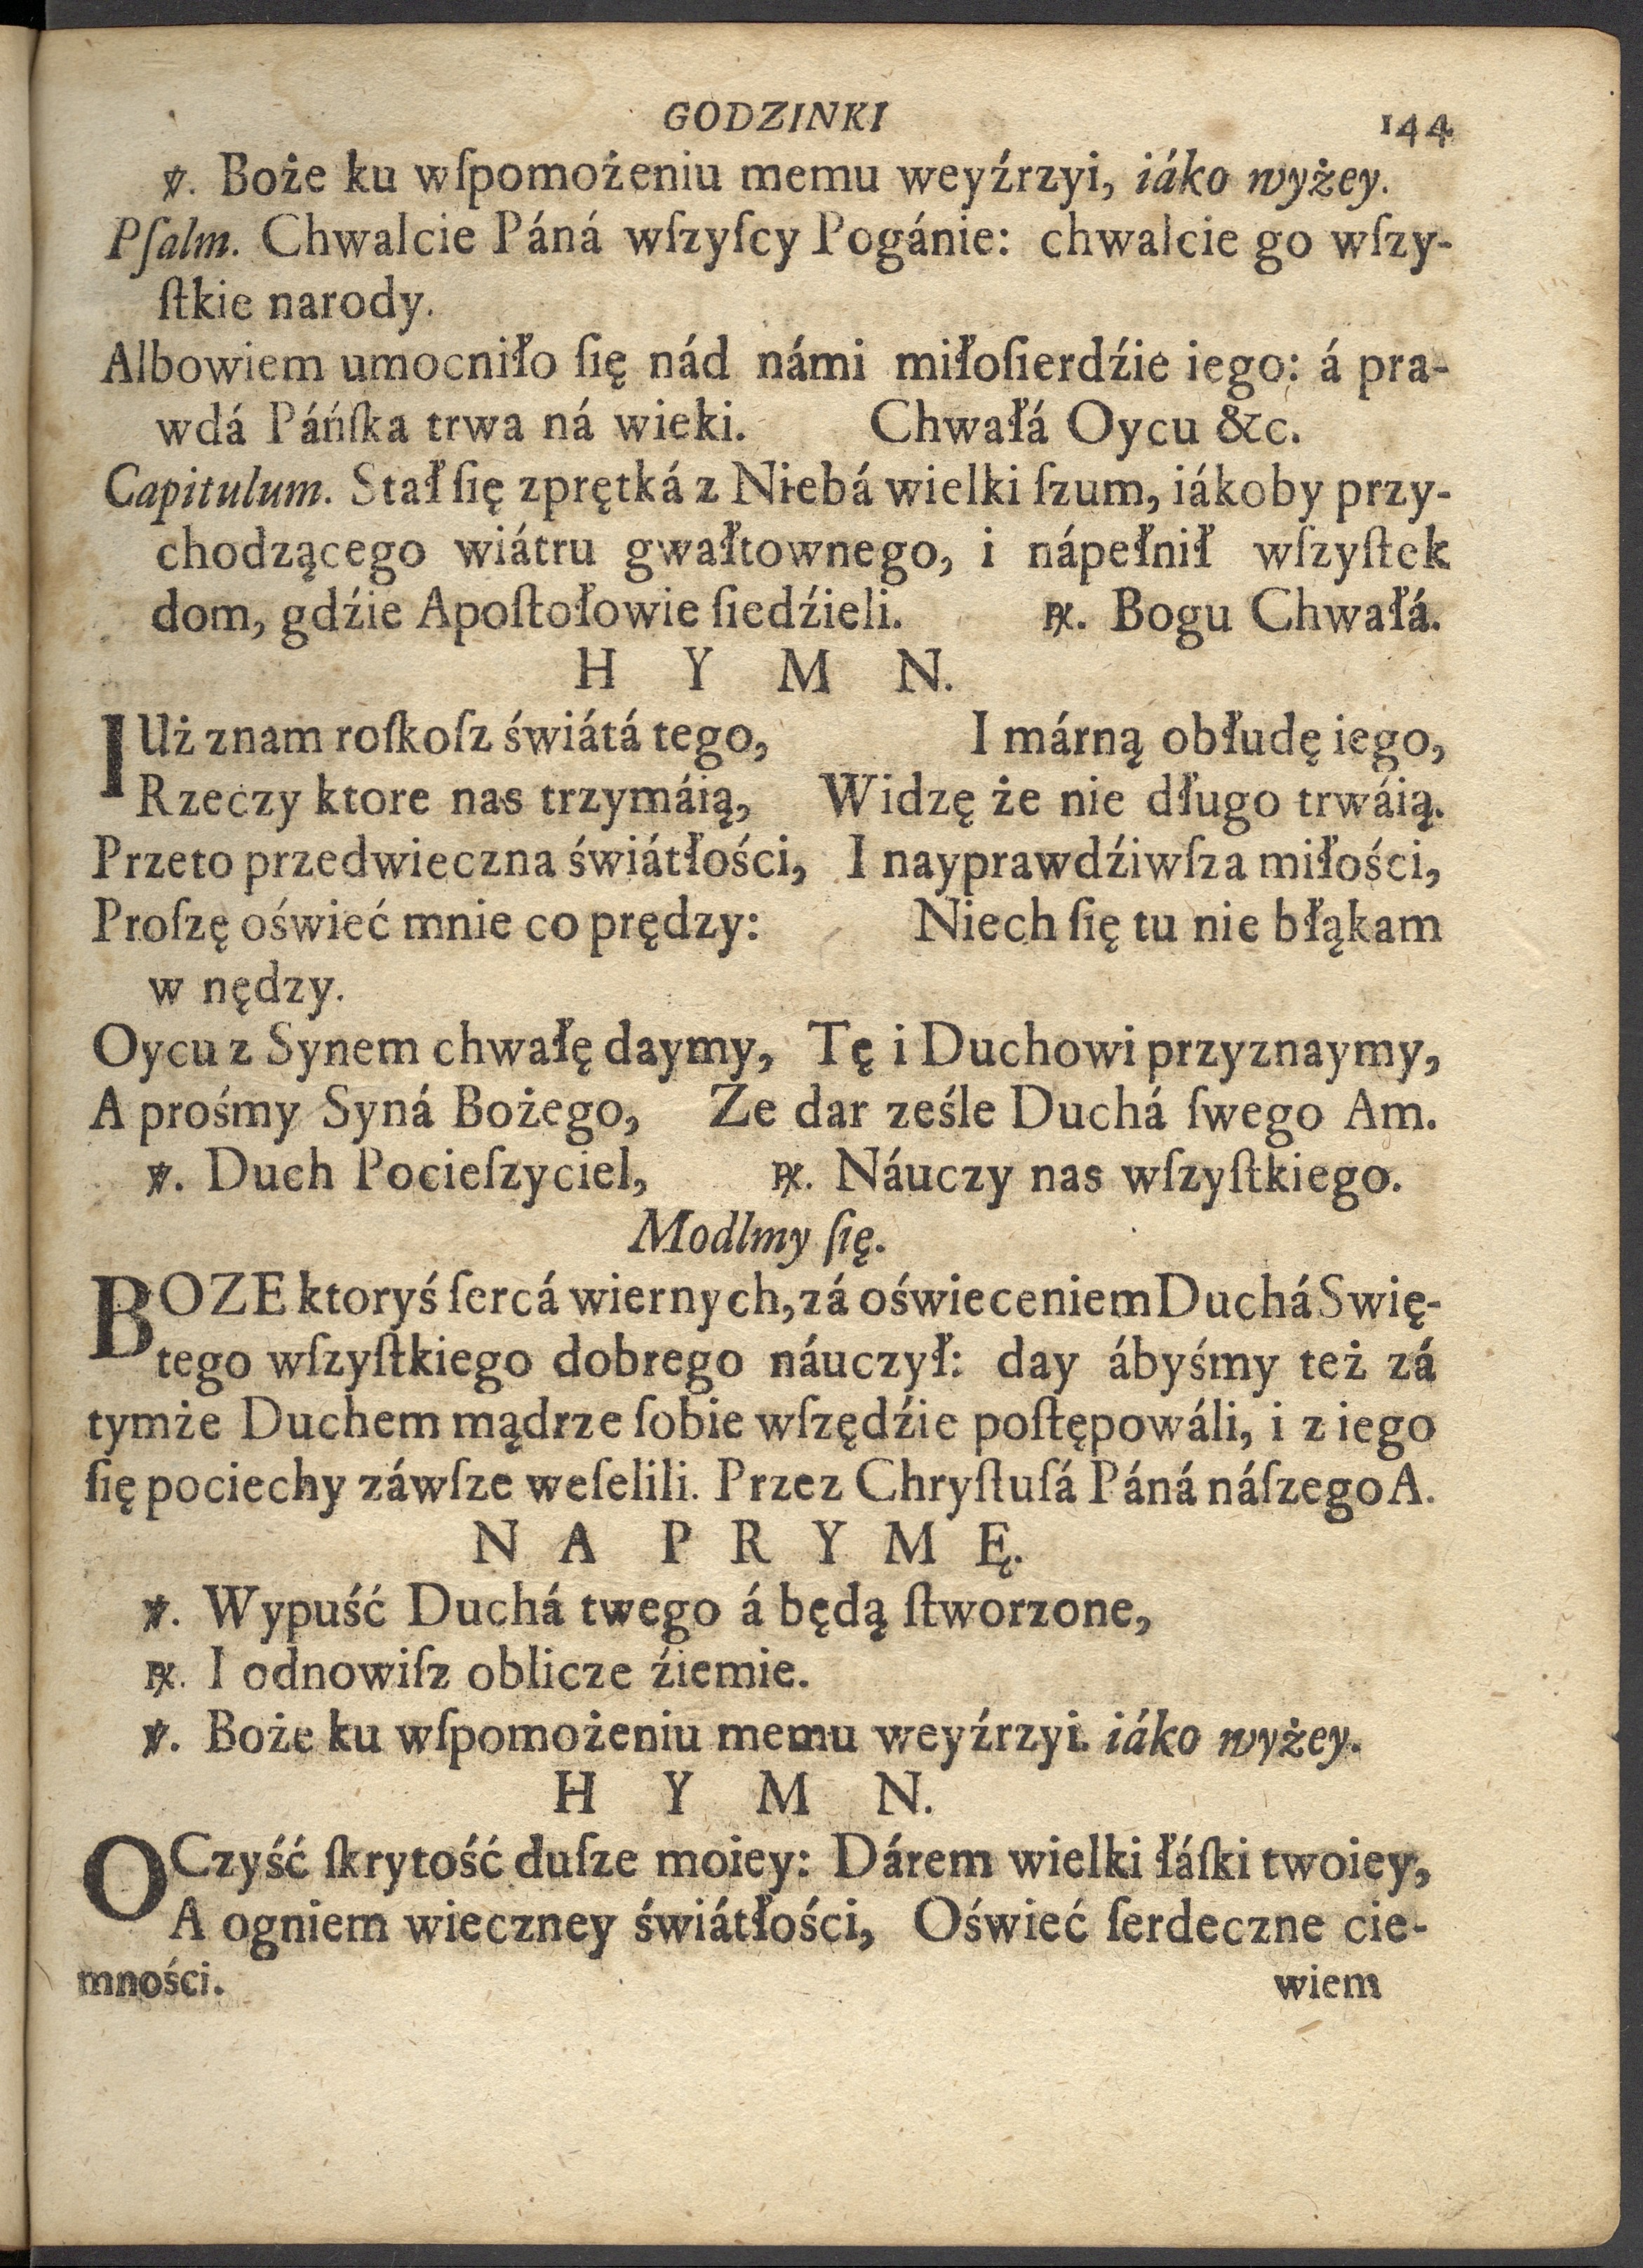 GODZINKI 144
℣. Boże ku wſpomożeniu memu weyźrzyi, iáko wyżey.
Pſalm. Chwalcie Páná wſzyſcy Pogánie: chwalcie go wſzy-
ſtkie narody.
Albowiem umocniło ſię nád námi miłoſierdźie iego: á pra-
wdá Páńſka trwa ná wieki. Chwałá Oycu &c.
Capitulum. Stał ſię zprętká z Niebá wielki ſzum, iákoby przy-
chodzącego wiátru gwałtownego, i nápełnił wſzyſtek
dom, gdźie Apoſtołowie ſiedźieli. ℟. Bogu Chwałá.
H Y M N.
IUż znam roſkoſz świátá tego, I márną obłudę iego,
Rzeczy ktore nas trzymáią, Widzę że nie długo trwáią.
Przeto przedwieczna świátłości, I nayprawdźiwſza miłości,
Proſzę oświeć mnie co prędzy: Niech ſię tu nie błąkam
w nędzy.
Oycu z Synem chwałę daymy, Tę i Duchowi przyznaymy,
A prośmy Syná Bożego, Ze dar ześle Duchá ſwego Am.
℣. Duch Pocieſzyciel, ℟. Náuczy nas wſzyſtkiego.
Modlmy ſię.
BOZE ktoryś ſercá wiernych, zá oświeceniem Duchá Swię-
tego wſzyſtkiego dobrego náuczył: day ábyśmy też zá
tymże Duchem mądrze ſobie wſzędźie poſtępowáli, i z iego
ſię pociechy záwſze weſelili. Przez Chryſtuſá Páná náſzego A.
N A P R Y M Ę.
℣. Wypuść Duchá twego á będą ſtworzone,
℟. I odnowiſz oblicze źiemie.
℣. Boże ku wſpomożeniu memu weyźrzyi. iáko wyżey.
H Y M N.
OCzyść ſkrytość duſze moiey: Dárem wielki łáſki twoiey,
A ogniem wieczney świátłości, Oświeć ſerdeczne cie-
mności. wiem